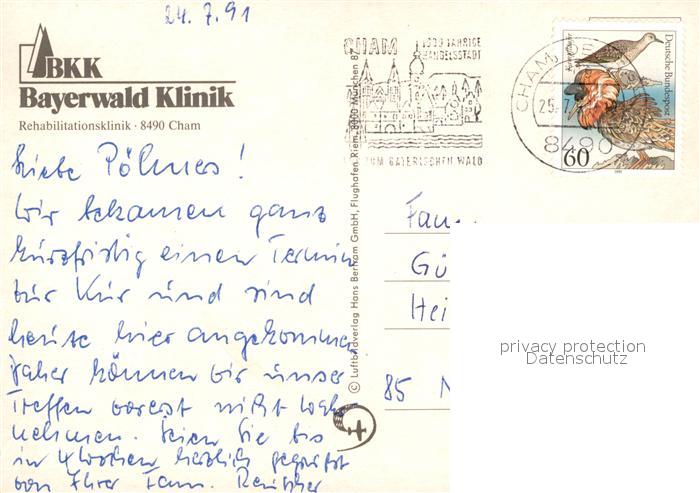 24.7.91
BKK
Bayerwald Klinik
Rehabilitationsklinik · 8490 Cham
Liebe Pölners!
Wir bekamen ganz
kurzfristig einen Termin
zur Kur und sind
heute hier angekommen
Daher können wir unser
Treffen vorerst nicht wahr-
nehmen. Seien Sie bis
in 4 Wochen herzlich gegrüßt
von Ihrer Fam.
© Luftbildverlag Hans Bertram GmbH, Flughafen Riem, 8000 München 87
CHAM
HANDELSSTADT
ZUM BAYERISCHEN WALD
CHAM
25.7.
8490
Deutsche Bundespost
Kampfläufer
60
1991
Fam
Gü
Hei
85 N
privacy protection
Datenschutz